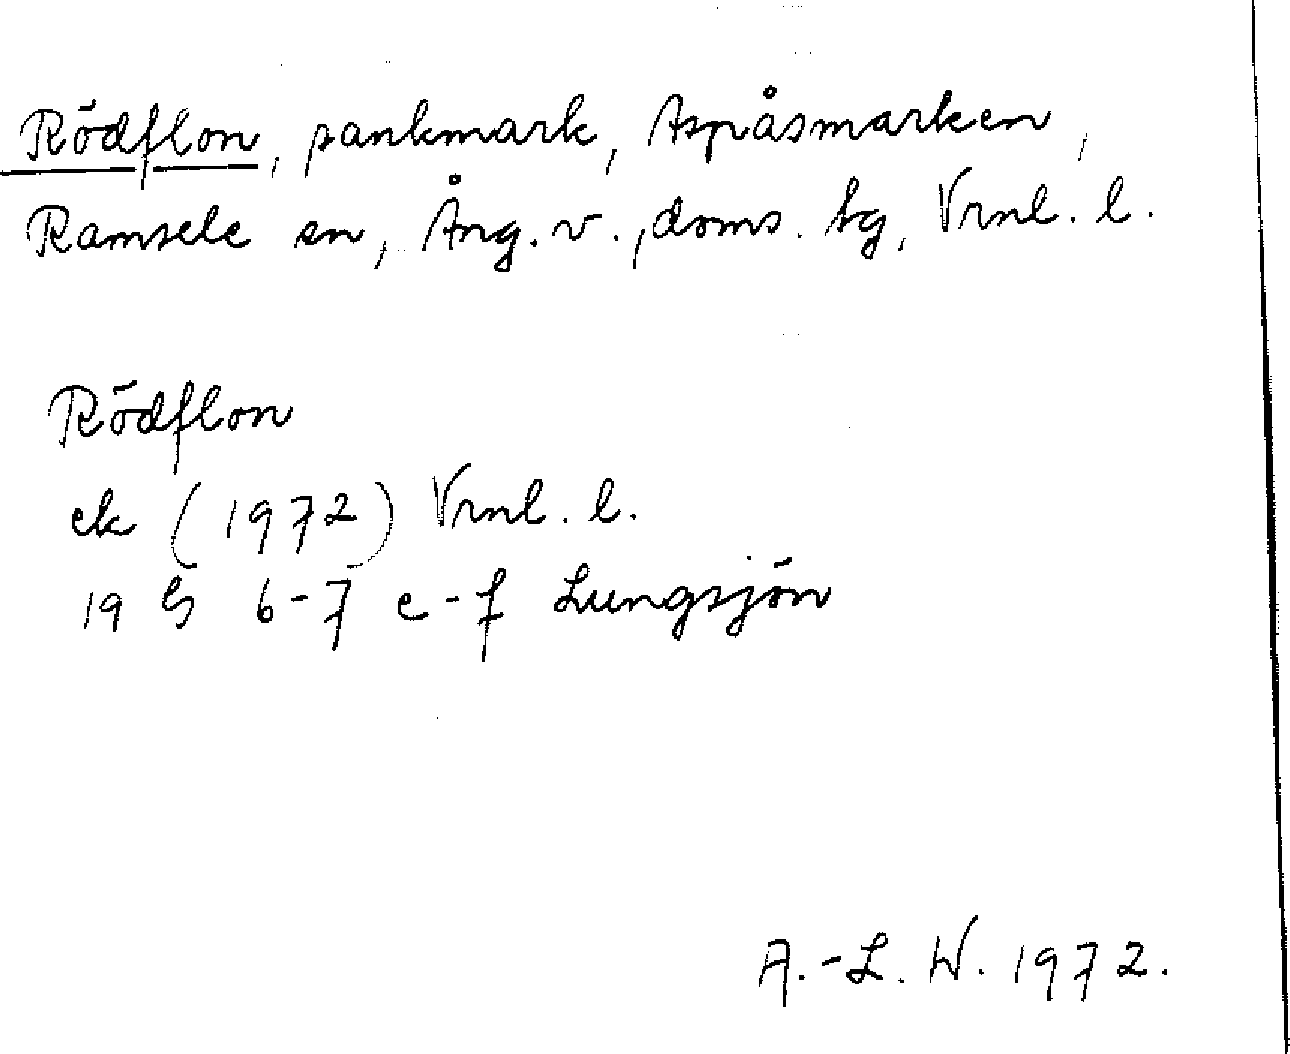 Rödflon, sankmark, Aspåsmarken,
Ramsele sn, Ång. v., doms. bg, Vrnl. l.
Rödflon
ek (1972) Vrnl. l.
19 G 6-7 e-f Lungsjön
A.-L. W. 1972.